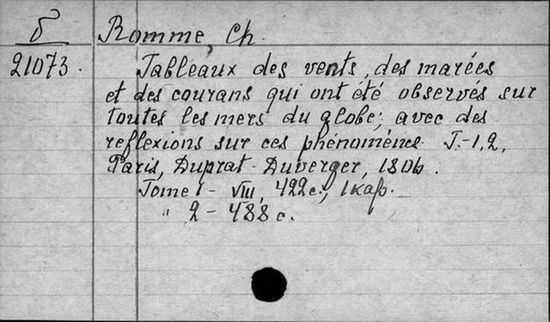 б Romme, Ch.
21073. Tableaux des vents, des marées
et des courans qui ont été observés sur
toutes les mers du globe; avec des
reflexions sur ces phénomènes. T.-1,2.
Paris, Duprat-Duverger, 1806.
Tome 1 - VIII, 422 c., 1 кар.
" 2 - 488 c.